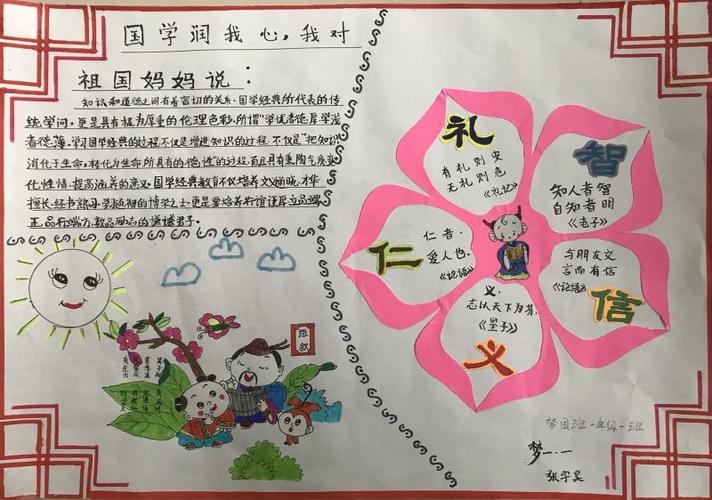 国学润我心,我对
祖国妈妈说:
知识和道德之间有着密切的关系.国学经典所代表的传
统学问,更是具有极为厚重的伦理色彩.所谓"学优者德厚学浅
者德薄.学习国学经典的过程不仅是增进知识的过程.不仅是"把知识
消化于生命,转化为生命所具有的德性"的过程.而且具有熏陶气质变
化性情.提高涵养的意义.国学经典教育不仅培养文
正.品行端方.敦品励志的谦谦君子.
礼
有礼则安
无礼则危
《礼记》
智
知人者智
自知者明
《老子》
仁
仁者.
爱人也.
《论语》
与朋友交
言而有信
《论语》
信
义.
志以天下为芬.
《墨子》
义
梦一.一
张宇昊